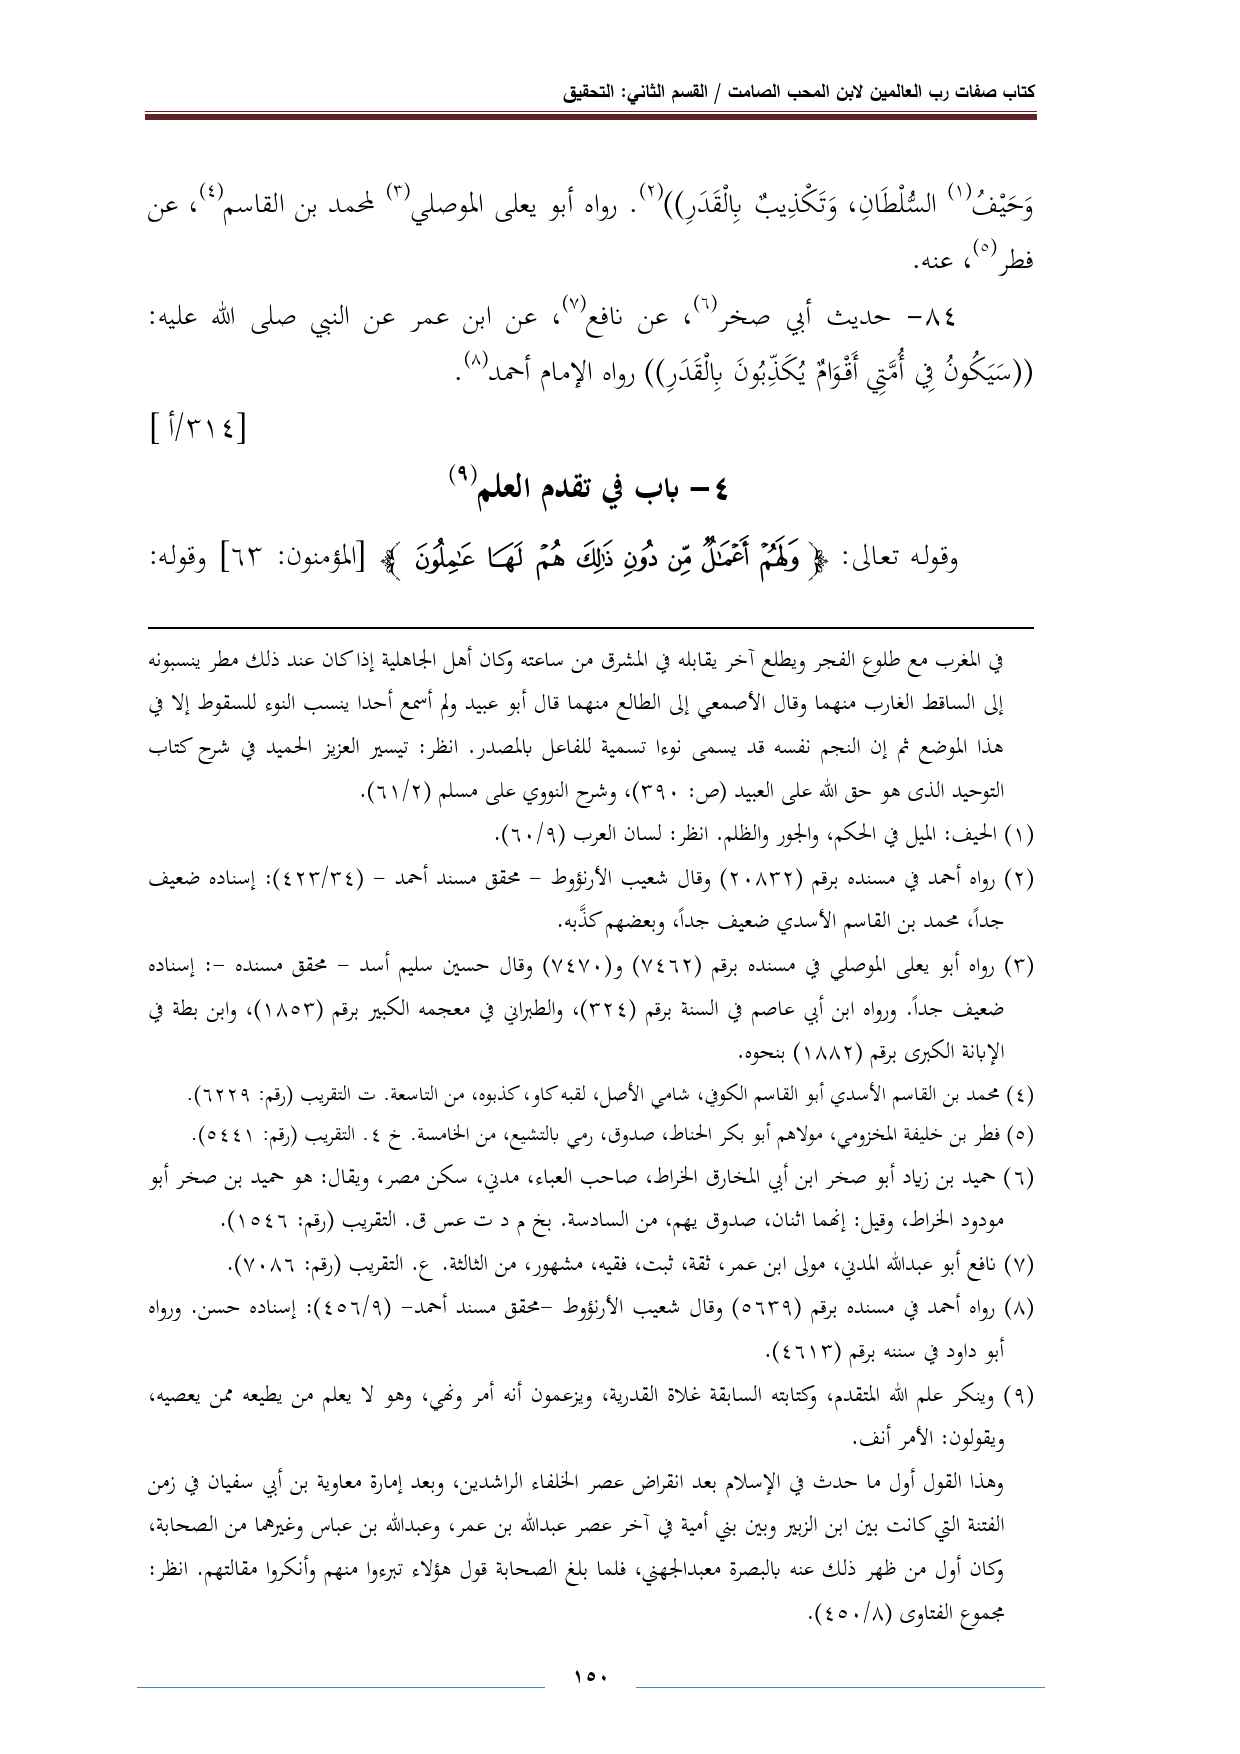 كتاب صفات رب العالمين لابن المحب الصامت / القسم الثاني: التحقيق
وَحَيْفُ(١) السُّلْطَانِ، وَتَكْذِيبٌ بِالْقَدَرِ))(٢). رواه أبو يعلى الموصلي(٣) لمحمد بن القاسم(٤)، عن
فطر(٥)، عنه.
٨٤- حديث أبي صخر(٦)، عن نافع(٧)، عن ابن عمر عن النبي صلى الله عليه:
((سَيَكُونُ فِي أُمَّتِي أَقْوَامٌ يُكَذِّبُونَ بِالْقَدَرِ)) رواه الإمام أحمد(٨).
[٣١٤/أ ]
٤- باب في تقدم العلم(٩)
وقوله تعالى: ﴿ وَلَهُمْ أَعْمَـٰلٌ مِّن دُونِ ذَٰلِكَ هُمْ لَهَا عَـٰمِلُونَ ﴾ [المؤمنون: ٦٣] وقوله:
في المغرب مع طلوع الفجر ويطلع آخر يقابله في المشرق من ساعته وكان أهل الجاهلية إذا كان عند ذلك مطر ينسبونه
إلى الساقط الغارب منهما وقال الأصمعي إلى الطالع منهما قال أبو عبيد ولم أسمع أحدا ينسب النوء للسقوط إلا في
هذا الموضع ثم إن النجم نفسه قد يسمى نوءا تسمية للفاعل بالمصدر. انظر: تيسير العزيز الحميد في شرح كتاب
التوحيد الذى هو حق الله على العبيد (ص: ٣٩٠)، وشرح النووي على مسلم (٦١/٢).
(١) الحيف: الميل في الحكم، والجور والظلم. انظر: لسان العرب (٦٠/٩).
(٢) رواه أحمد في مسنده برقم (٢٠٨٣٢) وقال شعيب الأرنؤوط - محقق مسند أحمد - (٤٢٣/٣٤): إسناده ضعيف
جداً، محمد بن القاسم الأسدي ضعيف جداً، وبعضهم كذَّبه.
(٣) رواه أبو يعلى الموصلي في مسنده برقم (٧٤٦٢) و(٧٤٧٠) وقال حسين سليم أسد - محقق مسنده -: إسناده
ضعيف جداً. ورواه ابن أبي عاصم في السنة برقم (٣٢٤)، والطبراني في معجمه الكبير برقم (١٨٥٣)، وابن بطة في
الإبانة الكبرى برقم (١٨٨٢) بنحوه.
(٤) محمد بن القاسم الأسدي أبو القاسم الكوفي، شامي الأصل، لقبه كاو، كذبوه، من التاسعة. ت التقريب (رقم: ٦٢٢٩).
(٥) فطر بن خليفة المخزومي، مولاهم أبو بكر الحناط، صدوق، رمي بالتشيع، من الخامسة. خ ٤. التقريب (رقم: ٥٤٤١).
(٦) حميد بن زياد أبو صخر ابن أبي المخارق الخراط، صاحب العباء، مدني، سكن مصر، ويقال: هو حميد بن صخر أبو
مودود الخراط، وقيل: إنهما اثنان، صدوق يهم، من السادسة. بخ م د ت عس ق. التقريب (رقم: ١٥٤٦).
(٧) نافع أبو عبدالله المدني، مولى ابن عمر، ثقة، ثبت، فقيه، مشهور، من الثالثة. ع. التقريب (رقم: ٧٠٨٦).
(٨) رواه أحمد في مسنده برقم (٥٦٣٩) وقال شعيب الأرنؤوط -محقق مسند أحمد- (٤٥٦/٩): إسناده حسن. ورواه
أبو داود في سننه برقم (٤٦١٣).
(٩) وينكر علم الله المتقدم، وكتابته السابقة غلاة القدرية، ويزعمون أنه أمر ونهي، وهو لا يعلم من يطيعه ممن يعصيه،
ويقولون: الأمر أنف.
وهذا القول أول ما حدث في الإسلام بعد انقراض عصر الخلفاء الراشدين، وبعد إمارة معاوية بن أبي سفيان في زمن
الفتنة التي كانت بين ابن الزبير وبين بني أمية في آخر عصر عبدالله بن عمر، وعبدالله بن عباس وغيرهما من الصحابة،
وكان أول من ظهر ذلك عنه بالبصرة معبدالجهني، فلما بلغ الصحابة قول هؤلاء تبرءوا منهم وأنكروا مقالتهم. انظر:
مجموع الفتاوى (٤٥٠/٨).
١٥٠